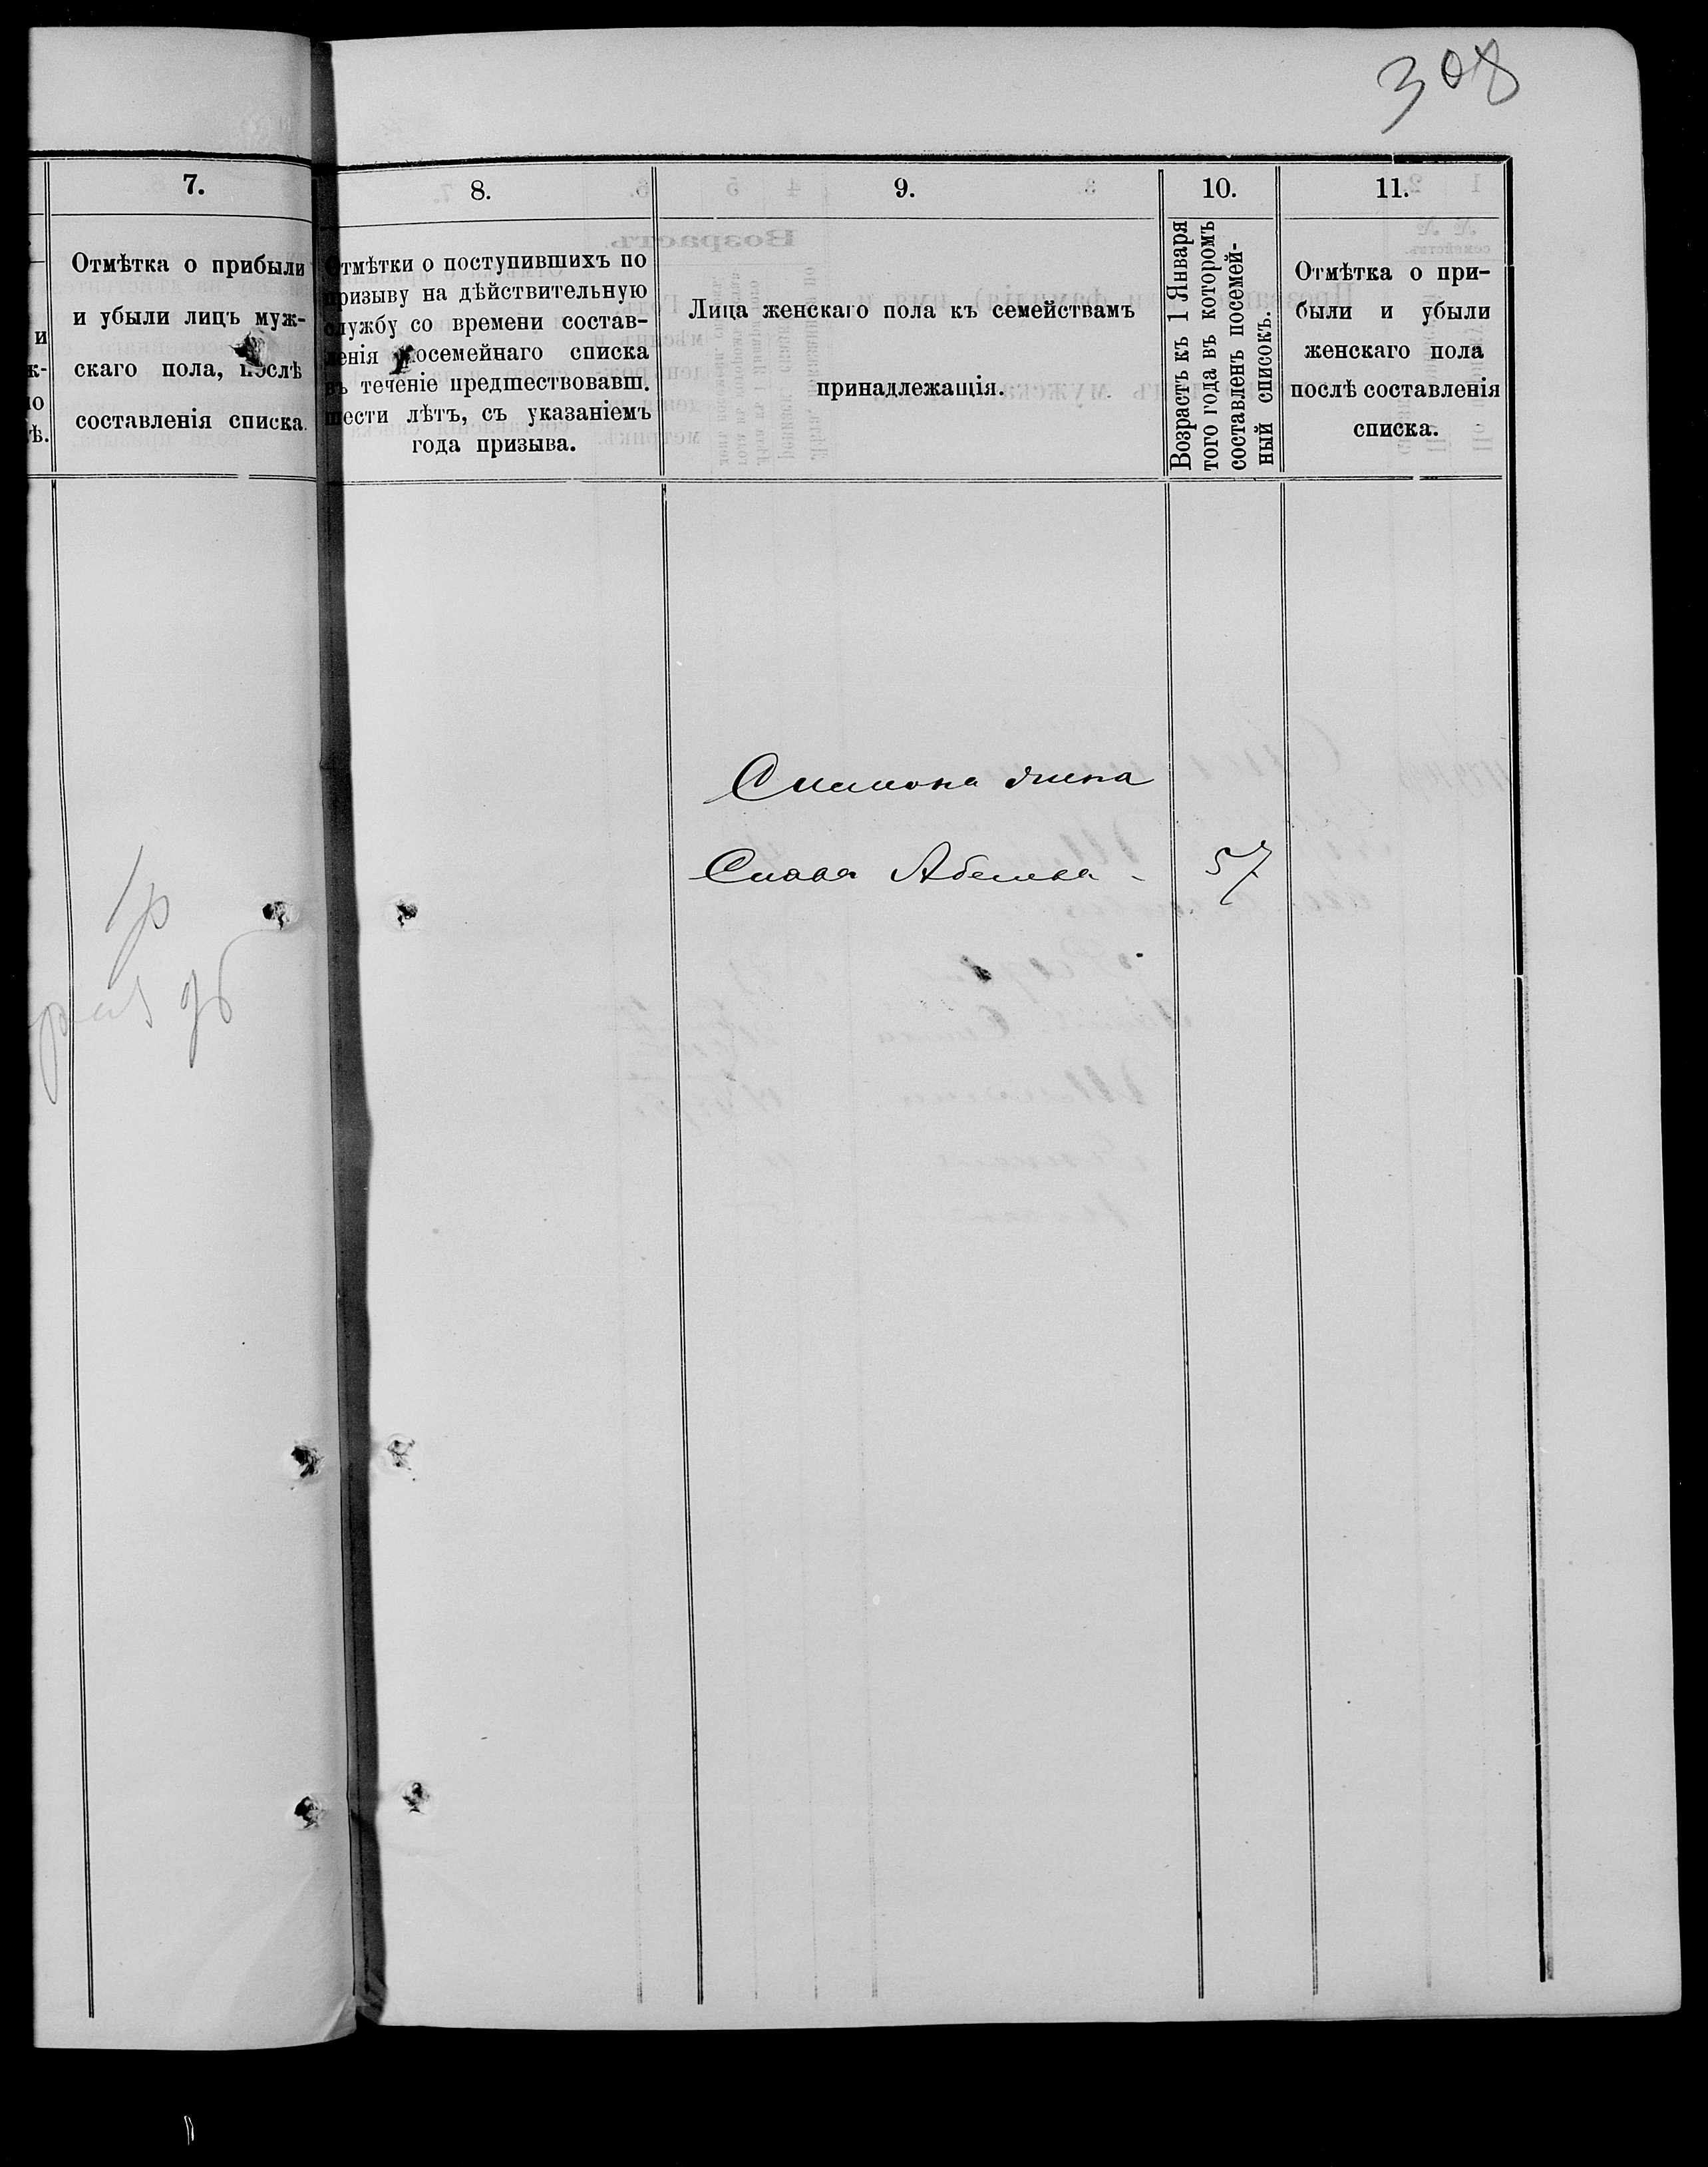 308
7.
Отмѣтка о прибыли
и убыли лицъ муж-
скаго пола, послѣ
составленія списка.
8.
Отмѣтки о поступившихъ по
призыву на дѣйствительную
службу со времени состав-
ленія посемейнаго списка
въ теченіе предшествовавш.
шести лѣтъ, съ указаніемъ
года призыва.
9.
Лица женскаго пола къ семействамъ
принадлежащія.
10.
Возрастъ къ 1 Января
того года въ которомъ
составленъ посемей-
ный списокъ.
11.
Отмѣтка о при-
были и убыли
женскаго пола
послѣ составленія
списка.
Симмона жина
Слава Абелева - 57